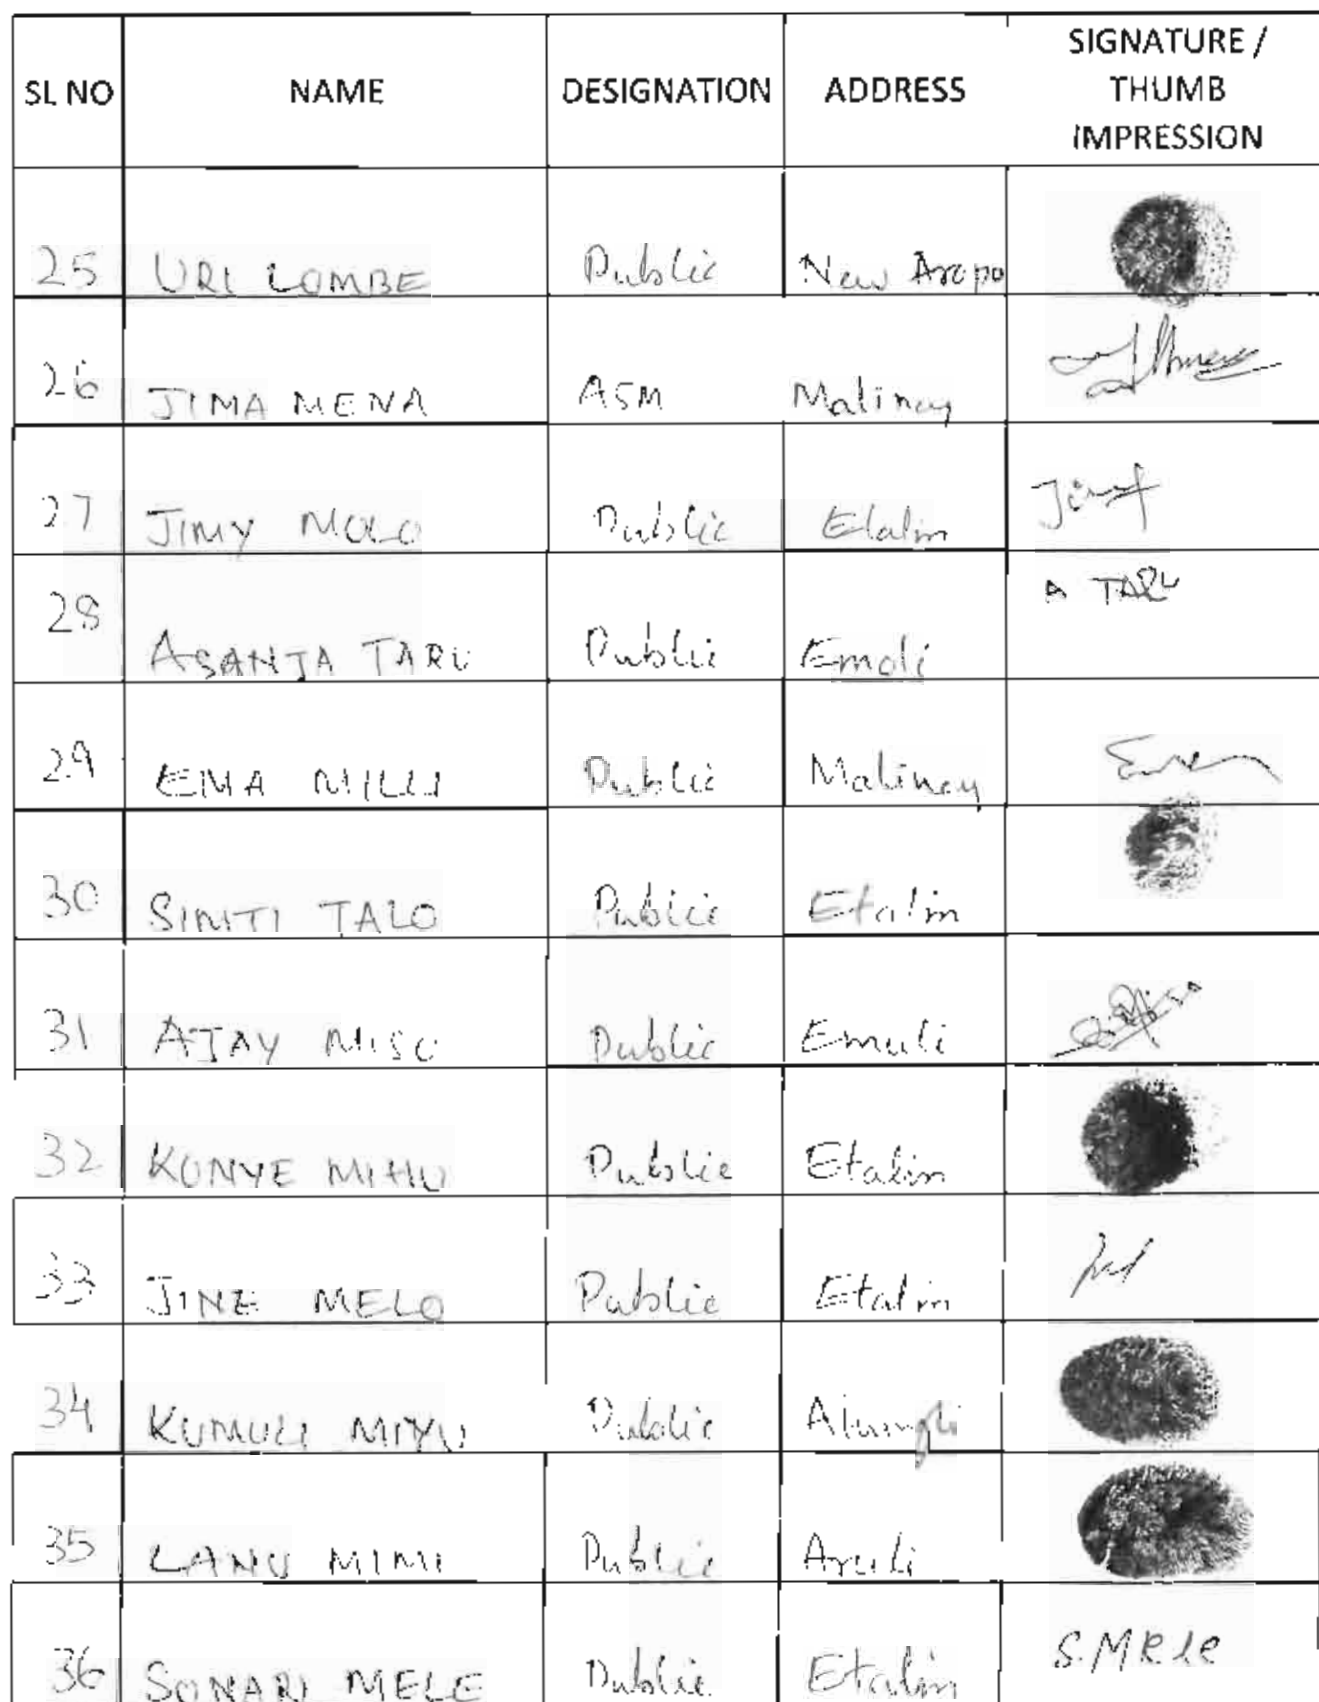 SL NO NAME DESIGNATION ADDRESS SIGNATURE / THUMB IMPRESSION
25 URI LOMBE Public New Aropo
26 JIMA MENA ASM Malinay
27 JIMY MOLO Public Etalin
28 ASANJA TARU Public Emoli A TARU
29 EMA MILLI Public Malinay
30 SIMTI TALO Public Etalin
31 AJAY MISO Public Emuli
32 KONYE MIHU Public Etalin
33 JINE MELO Public Etalin
34 KUMULI MIYU Public
35 LANU MIMI Public Aruli
36 SONARI MELE Public Etalin